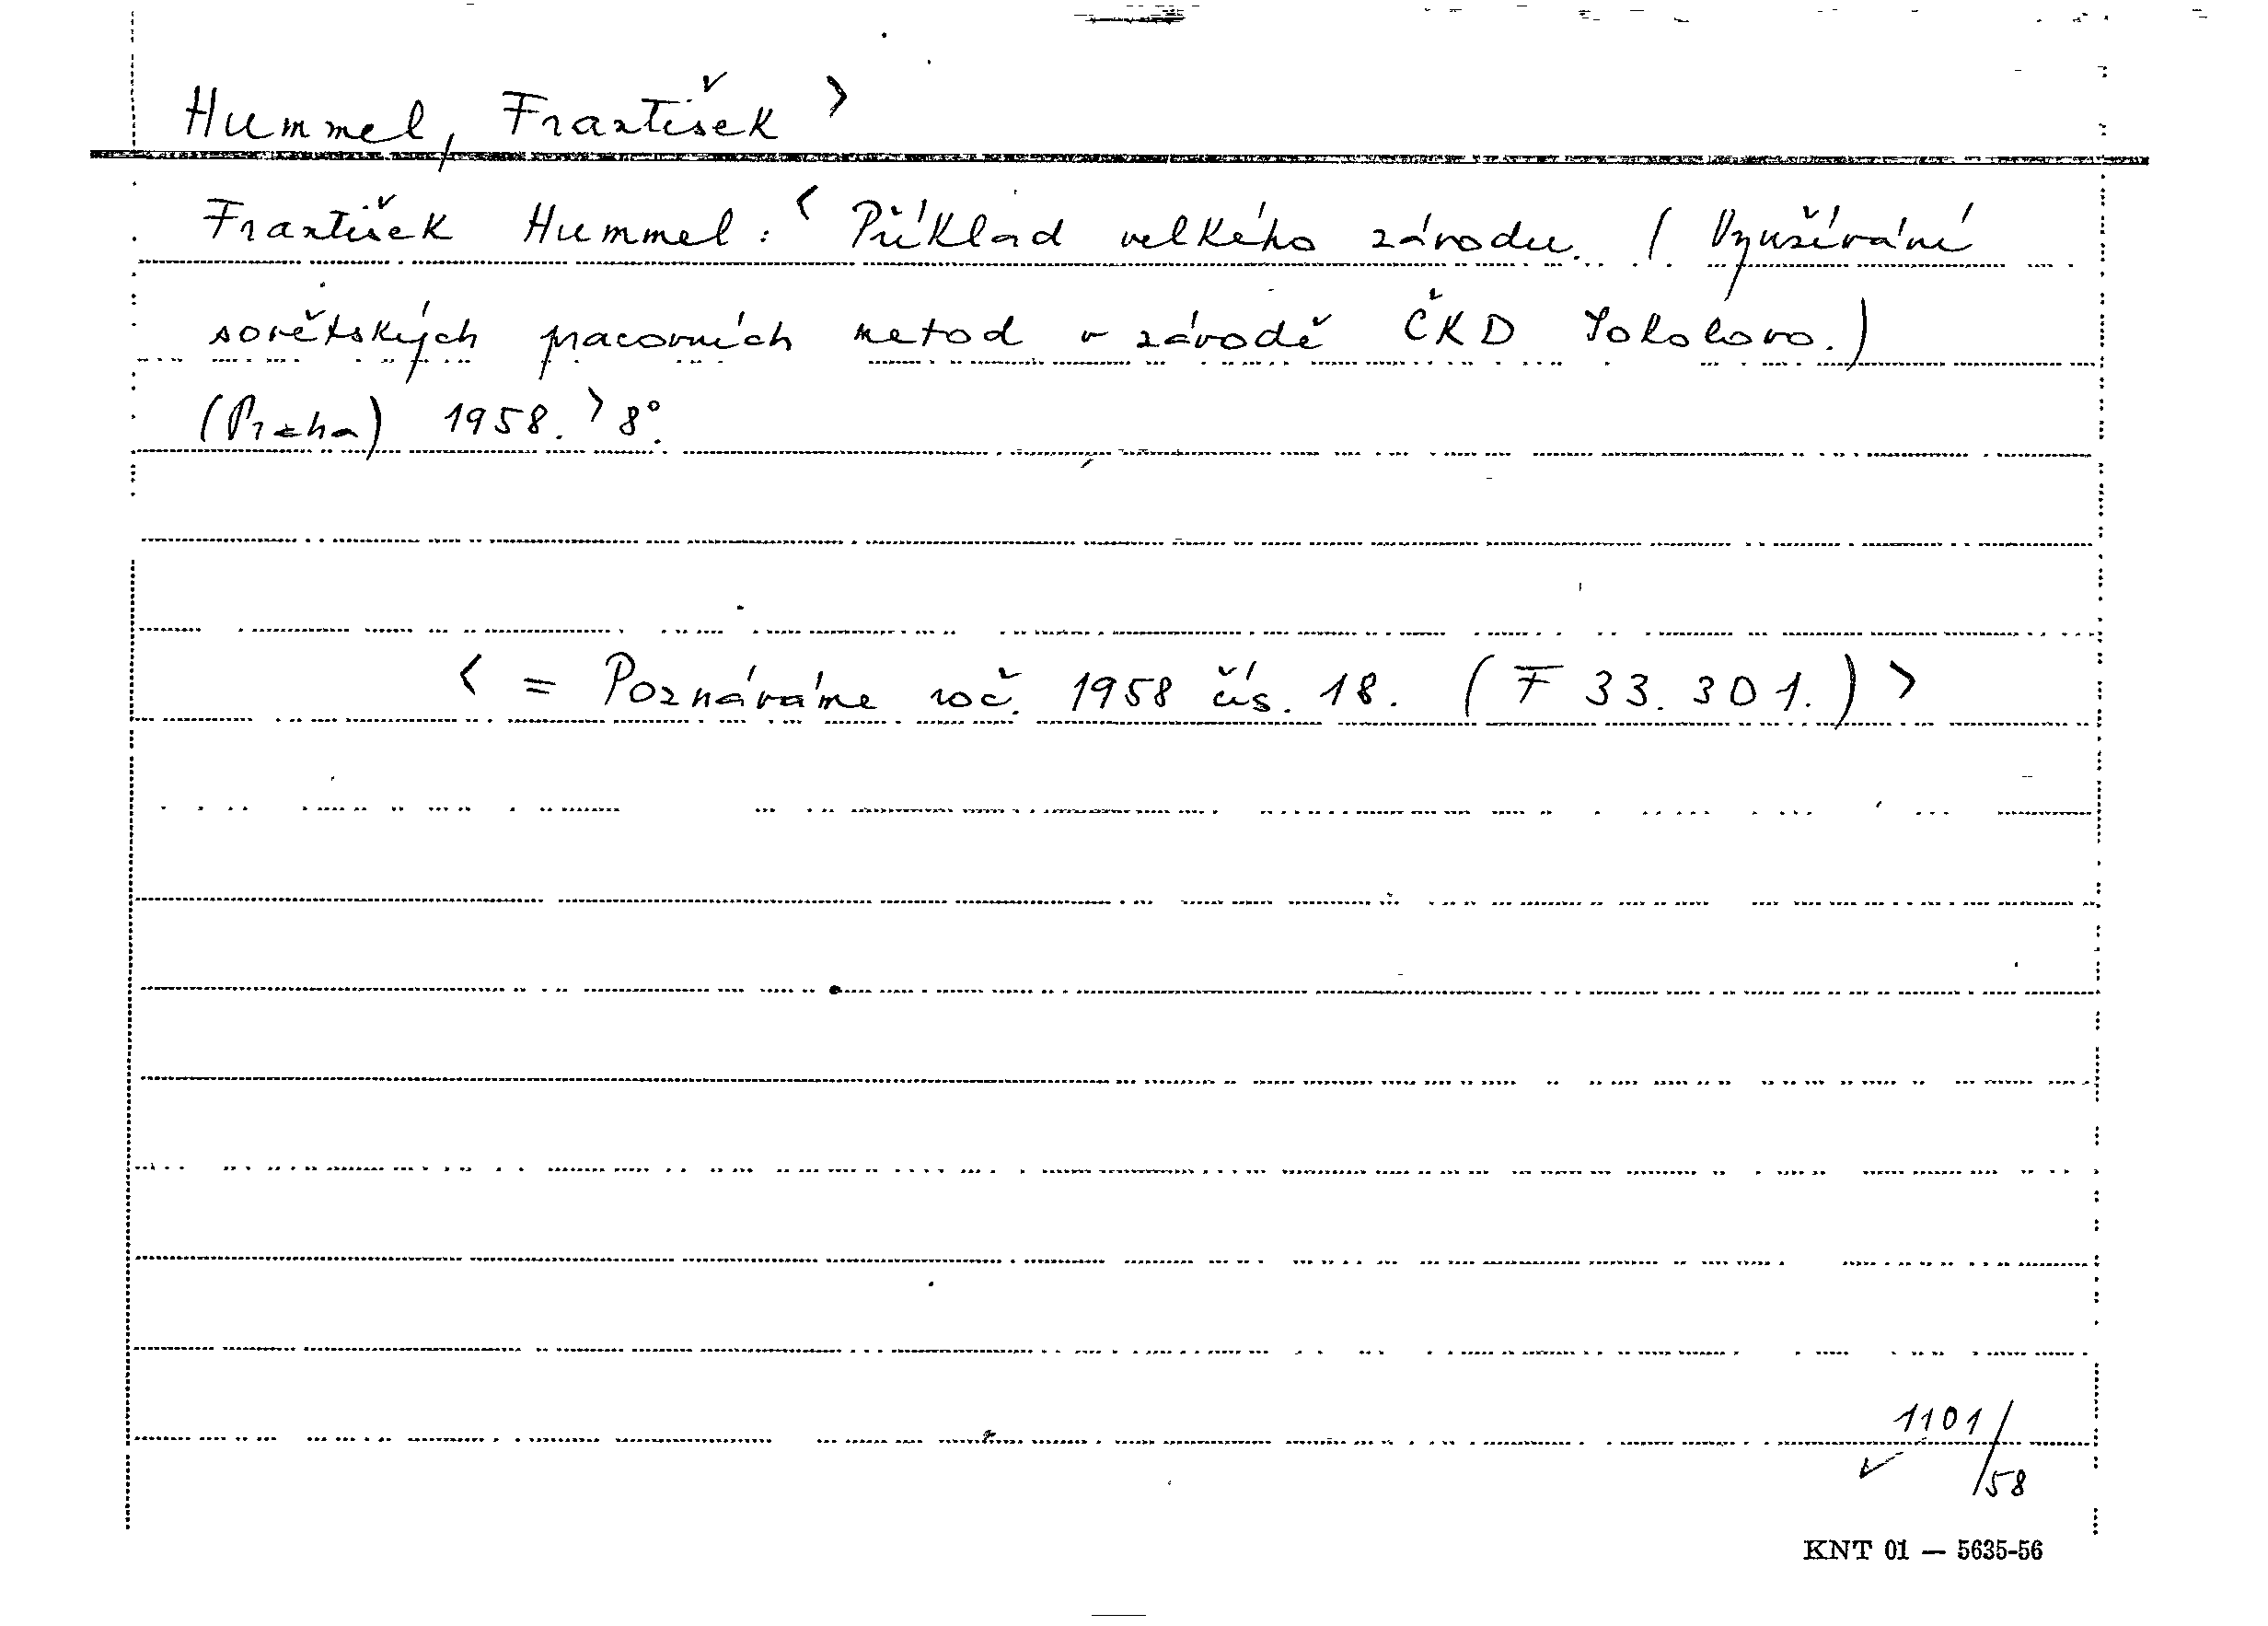 Hummel, František >
František Hummel: < Příklad velkého závodu. (Využívání
sovětských pracovních metod v závodě ČKD Sokolovo.)
(Praha) 1958. > 8°.
< = Poznáváme roč. 1958 čís. 18. (F 33.301.) >
1101/
✓ /58
KNT 01 — 5635-56